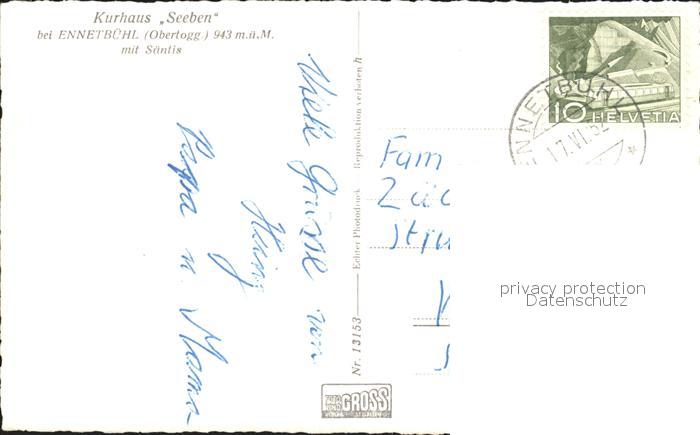 Kurhaus „Seeben“
bei ENNETBÜHL (Obertogg.) 943 m.ü.M.
mit Säntis
Viele Grüsse von
Papa u. Mama
Nr. 13153
Echter Photodruck
Reproduktion verboten
GROSS
Fam
10 HELVETIA
ENNETBÜHL
17.VI.52
privacy protection
Datenschutz